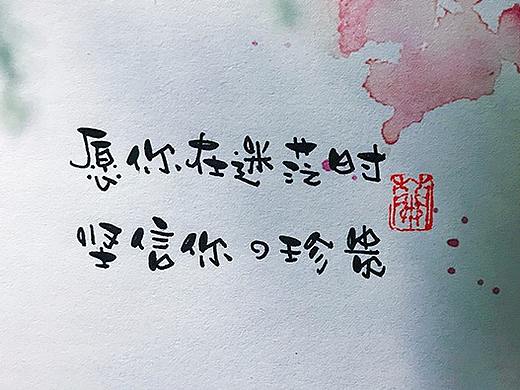 愿你在迷茫时
坚信你の珍贵